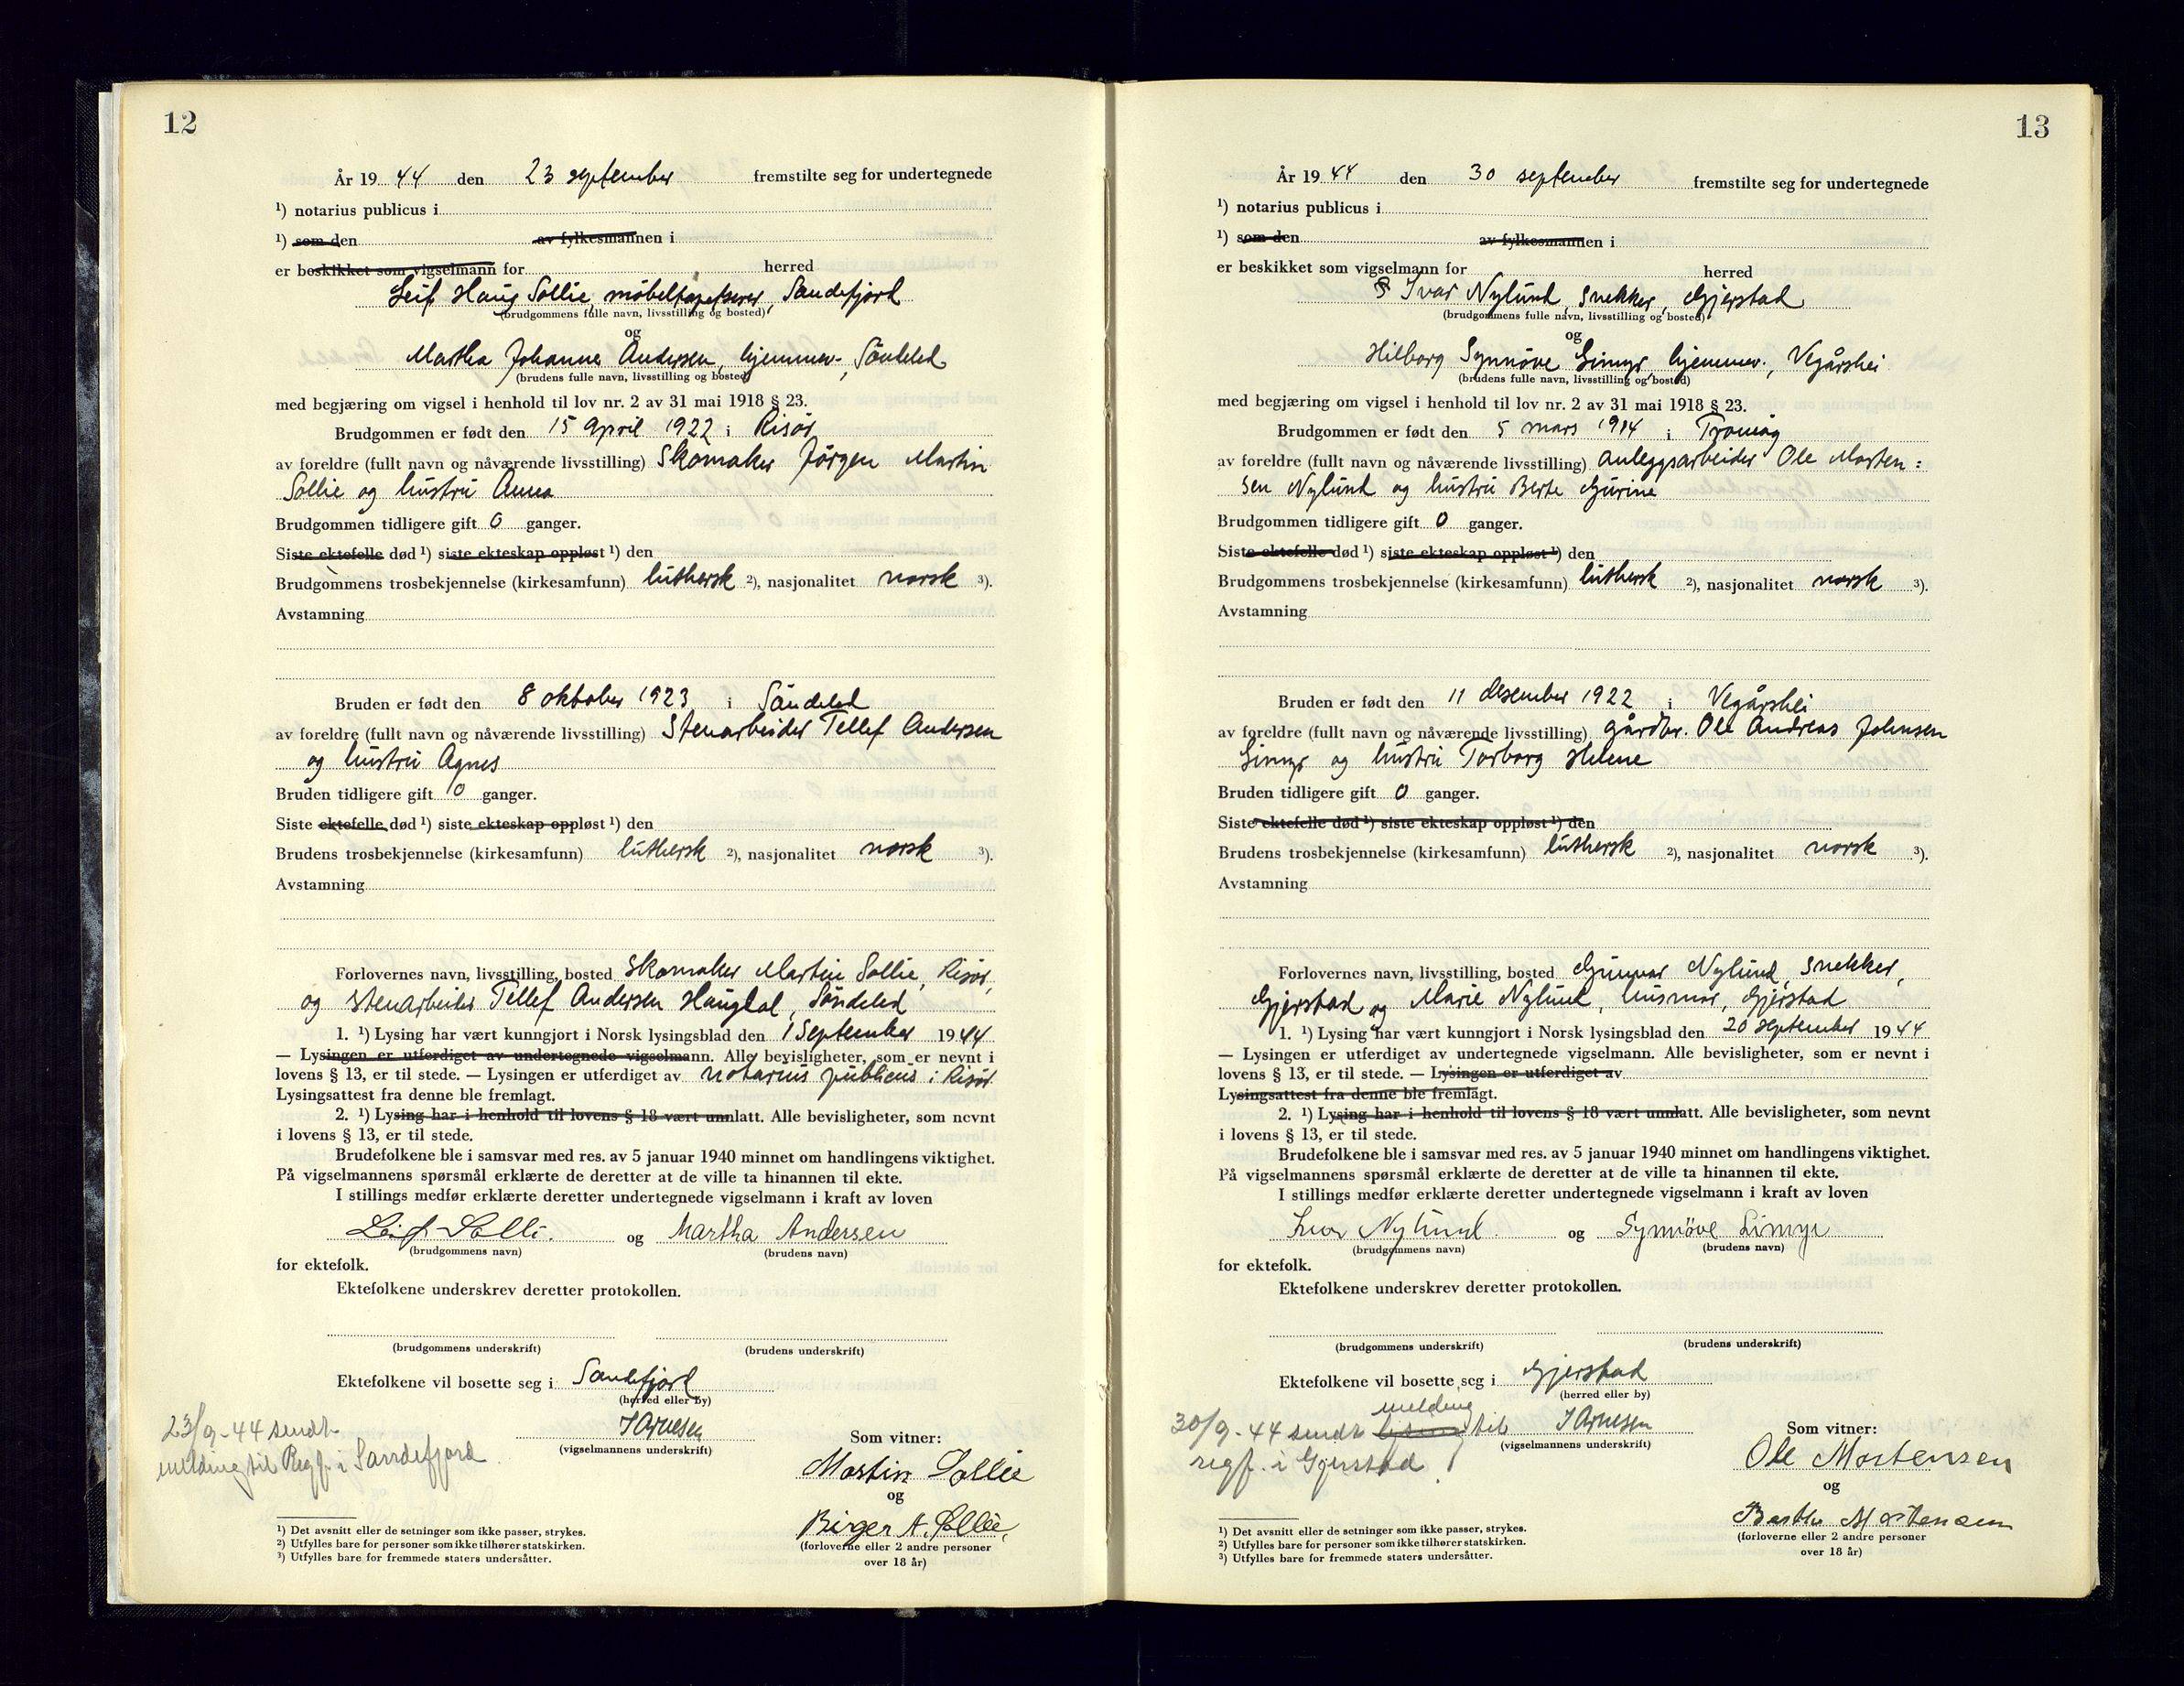 12
År 19 44 den 23 september fremstilte seg for undertegnede
¹) notarius publicus i
¹) som den av fylkesmannen i
er beskikket som vigselmann for herred
Leif Hans Sollie, møbeltapetserer, Sandefjord
(brudgommens fulle navn, livsstilling og bosted)
og
Martha Johanne Andersen, hjemmev., Söndeled
(brudens fulle navn, livsstilling og bosted)
med begjæring om vigsel i henhold til lov nr. 2 av 31 mai 1918 § 23.
Brudgommen er født den 15 april 1922 i Risør
av foreldre (fullt navn og nåværende livsstilling) Skomaker Jörgen Martin
Sollie og hustru Anna
Brudgommen tidligere gift 0 ganger.
Siste ektefelle død ¹) siste ekteskap oppløst ¹) den
Brudgommens trosbekjennelse (kirkesamfunn) luthersk ²), nasjonalitet norsk ³).
Avstamning
Bruden er født den 8 oktober 1923 i Söndeled
av foreldre (fullt navn og nåværende livsstilling) Stenarbeider Tellef Andersen
og hustru Agnes
Bruden tidligere gift 0 ganger.
Siste ektefelle død ¹) siste ekteskap oppløst ¹) den
Brudens trosbekjennelse (kirkesamfunn) luthersk ²), nasjonalitet norsk ³).
Avstamning
Forlovernes navn, livsstilling, bosted Skomaker Martin Sollie, Risør,
og stenarbeider Tellef Andersen Haugdal, Söndeled
1. ¹) Lysing har vært kunngjort i Norsk lysingsblad den 1 September 1944
— Lysingen er utferdiget av undertegnede vigselmann. Alle bevisligheter, som er nevnt i
lovens § 13, er til stede. — Lysingen er utferdiget av notarius publicus i Risør.
Lysingsattest fra denne ble fremlagt.
2. ¹) Lysing har i henhold til lovens § 18 vært unnlatt. Alle bevisligheter, som nevnt
i lovens § 13, er til stede.
Brudefolkene ble i samsvar med res. av 5 januar 1940 minnet om handlingens viktighet.
På vigselmannens spørsmål erklærte de deretter at de ville ta hinannen til ekte.
I stillings medfør erklærte deretter undertegnede vigselmann i kraft av loven
Leif Solli. og Martha Andersen
(brudgommens navn) (brudens navn)
for ektefolk.
Ektefolkene underskrev deretter protokollen.
(brudgommens underskrift) (brudens underskrift)
Ektefolkene vil bosette seg i Sandefjord
(herred eller by)
J Arnesen
(vigselmannens underskrift)
23/9-44 sendt
melding til Regf. i Sandefjord
Som vitner:
Martin Sollie
og
Birger A. Sollie,
(forloverne eller 2 andre personer
over 18 år)
¹) Det avsnitt eller de setninger som ikke passer, strykes.
²) Utfylles bare for personer som ikke tilhører statskirken.
³) Utfylles bare for fremmede staters undersåtter.
13
År 19 44 den 30 september fremstilte seg for undertegnede
¹) notarius publicus i
¹) som den av fylkesmannen i
er beskikket som vigselmann for herred
Ivar Nylund, snekker, Gjerstad
(brudgommens fulle navn, livsstilling og bosted)
og
Hilborg Synnöve Limyr, hjemmev., Vegårshei
(brudens fulle navn, livsstilling og bosted)
med begjæring om vigsel i henhold til lov nr. 2 av 31 mai 1918 § 23.
Brudgommen er født den 5 mars 1914 i Tromöy
av foreldre (fullt navn og nåværende livsstilling) anleggsarbeider Ole Morten:
sen Nylund og hustru Berte Gurine
Brudgommen tidligere gift 0 ganger.
Siste ektefelle død ¹) siste ekteskap oppløst ¹) den
Brudgommens trosbekjennelse (kirkesamfunn) luthersk ²), nasjonalitet norsk ³).
Avstamning
Bruden er født den 11 desember 1922 i Vegårshei
av foreldre (fullt navn og nåværende livsstilling) gårdbr. Ole Andreas Johnsen
Limyr og hustru Torborg Helene
Bruden tidligere gift 0 ganger.
Siste ektefelle død ¹) siste ekteskap oppløst ¹) den
Brudens trosbekjennelse (kirkesamfunn) luthersk ²), nasjonalitet norsk ³).
Avstamning
Forlovernes navn, livsstilling, bosted Gunnar Nylund, snekker,
Gjerstad og Marie Nylund, husmor, Gjerstad
1. ¹) Lysing har vært kunngjort i Norsk lysingsblad den 20 september 1944
— Lysingen er utferdiget av undertegnede vigselmann. Alle bevisligheter, som er nevnt i
lovens § 13, er til stede. — Lysingen er utferdiget av
Lysingsattest fra denne ble fremlagt.
2. ¹) Lysing har i henhold til lovens § 18 vært unnlatt. Alle bevisligheter, som nevnt
i lovens § 13, er til stede.
Brudefolkene ble i samsvar med res. av 5 januar 1940 minnet om handlingens viktighet.
På vigselmannens spørsmål erklærte de deretter at de ville ta hinannen til ekte.
I stillings medfør erklærte deretter undertegnede vigselmann i kraft av loven
Ivar Nylund. og Synnöve Limyr
(brudgommens navn) (brudens navn)
for ektefolk.
Ektefolkene underskrev deretter protokollen.
(brudgommens underskrift) (brudens underskrift)
Ektefolkene vil bosette seg i Gjerstad
(herred eller by)
melding
30/9-44 sendt til
regf. i Gjerstad
J Arnesen
(vigselmannens underskrift)
Som vitner:
Ole Mortensen
og
Berthe Mortensen
(forloverne eller 2 andre personer
over 18 år)
¹) Det avsnitt eller de setninger som ikke passer, strykes.
²) Utfylles bare for personer som ikke tilhører statskirken.
³) Utfylles bare for fremmede staters undersåtter.